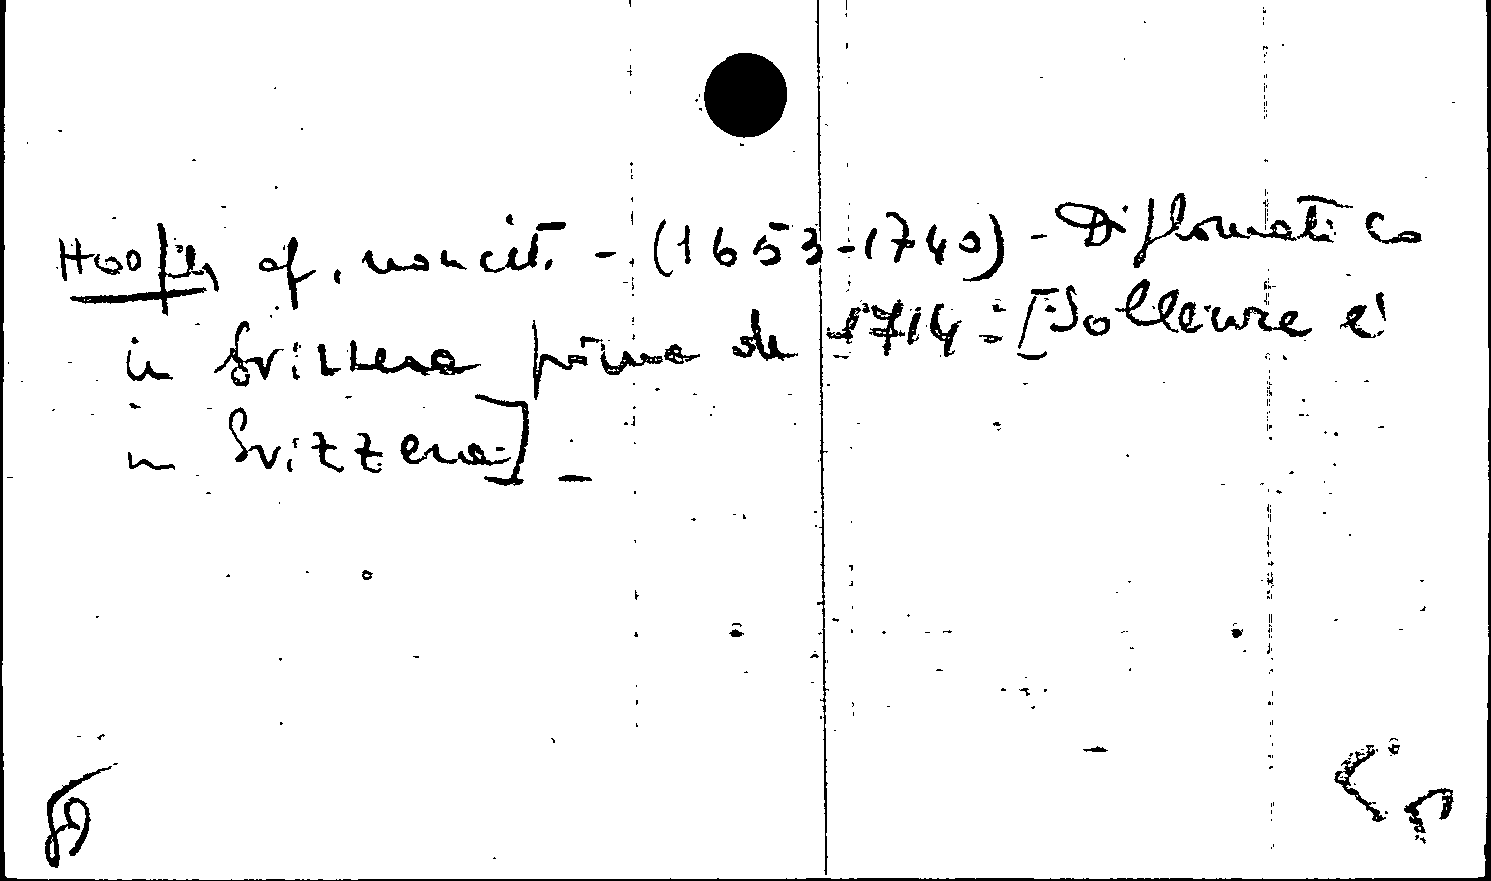 op. non cit. - (1653-1740) - Diplomatico
in Svizzera prima del 1714 - [Solleure è
in Svizzera] -